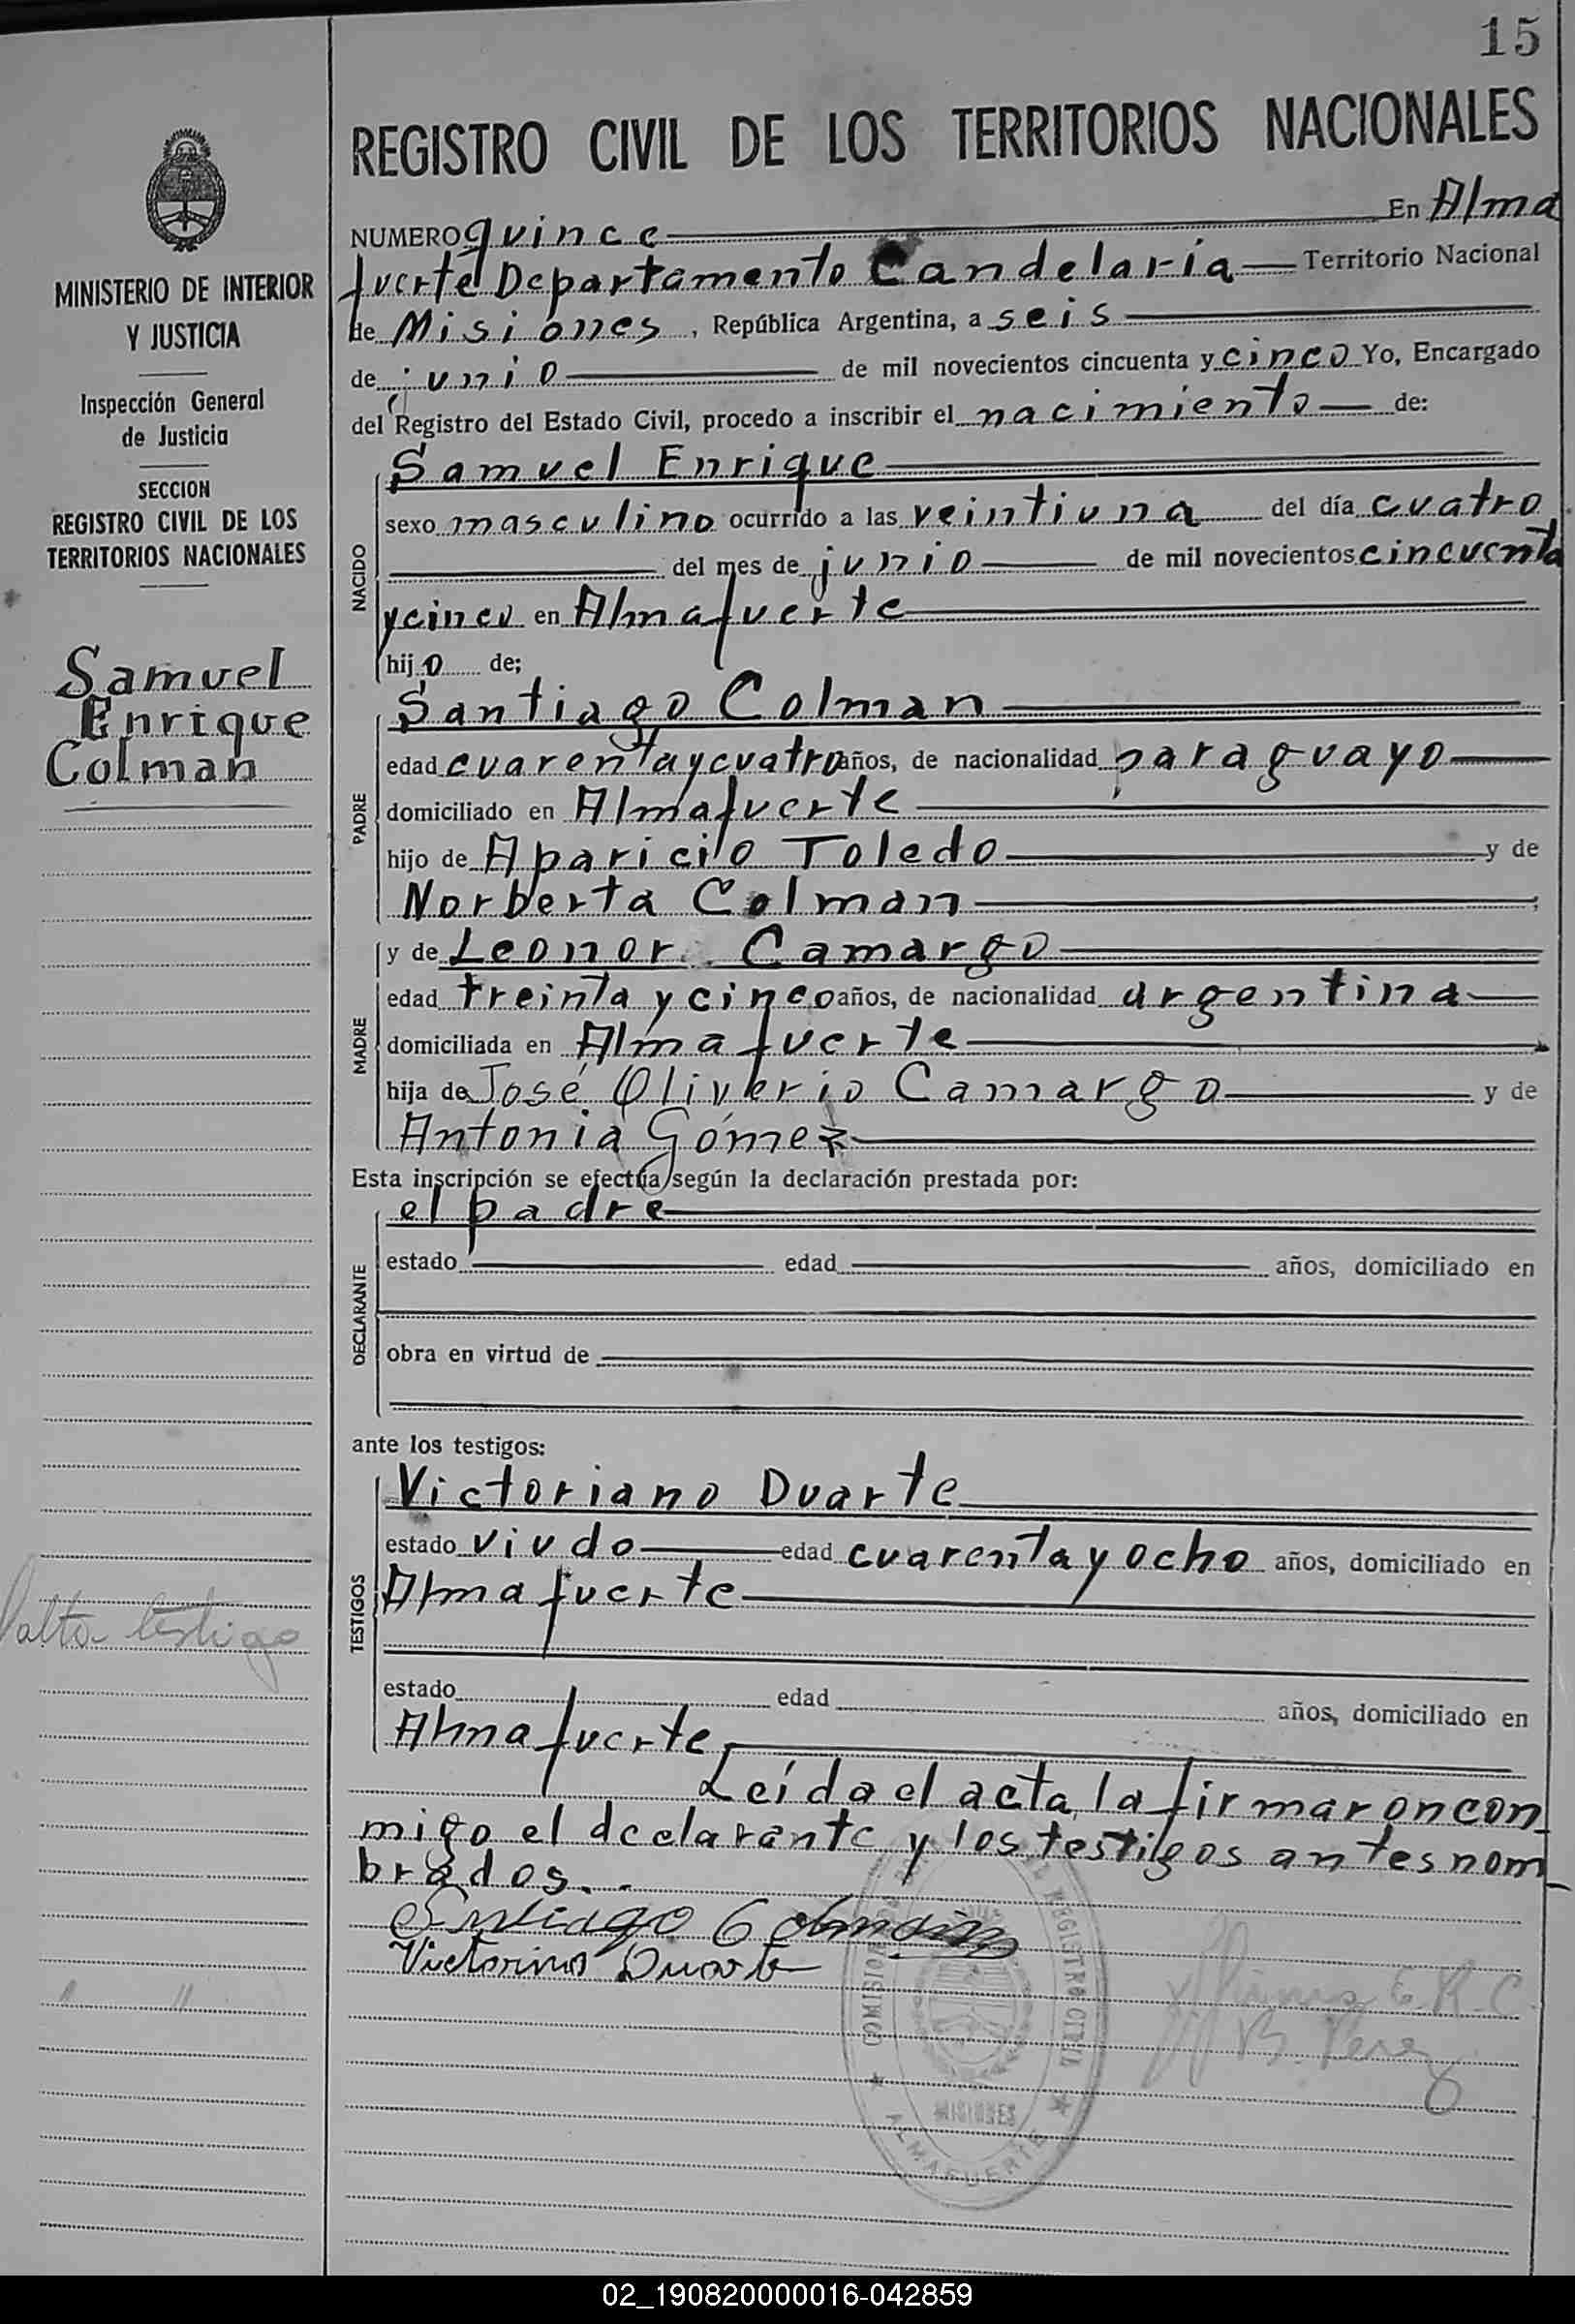 15
REGISTRO CIVIL DE LOS TERRITORIOS NACIONALES
MINISTERIO DE INTERIOR
Y JUSTICIA
Inspección General
de Justicia
SECCION
REGISTRO CIVIL DE LOS
TERRITORIOS NACIONALES
Samuel
Enrique
Colman
Falta testigo
NUMERO quince En Alma
fuerte Departamento Candelaria Territorio Nacional
de Misiones, República Argentina, a seis
de junio de mil novecientos cincuenta y cinco Yo, Encargado
del Registro del Estado Civil, procedo a inscribir el nacimiento de:
NACIDO
Samuel Enrique
sexo masculino ocurrido a las veintiuna del día cuatro
del mes de junio de mil novecientos cincuenta
y cinco en Almafuerte
hijo de;
PADRE
Santiago Colman
edad cuarenta y cuatro años, de nacionalidad paraguayo
domiciliado en Almafuerte
hijo de Aparicio Toledo y de
Norberta Colman;
MADRE
y de Leonor Camargo
edad treinta y cinco años, de nacionalidad argentina
domiciliada en Almafuerte
hija de José Oliverio Camargo y de
Antonia Gómez
Esta inscripción se efectúa según la declaración prestada por:
DECLARANTE
el padre
estado edad años, domiciliado en
obra en virtud de
ante los testigos:
TESTIGOS
Victoriano Duarte
estado viudo edad cuarenta y ocho años, domiciliado en
Almafuerte
estado edad años, domiciliado en
Almafuerte
Leída el acta, la firmaron con
migo el declarante y los testigos antes nom
brados.
Santiago Colman
Victorino Duarte
E.R.C.
B. Perez
REGISTRO CIVIL
MISIONES
ALMAFUERTE
02_190820000016-042859